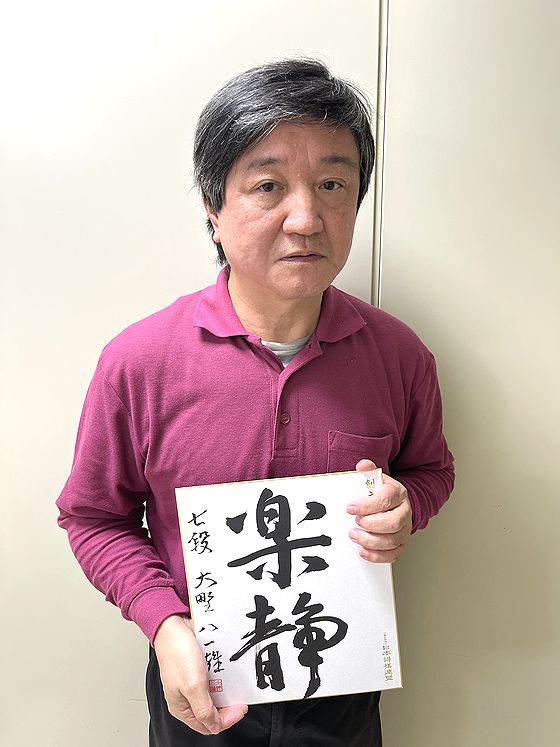 楽静
七段 大野八一雄
日本将棋連盟